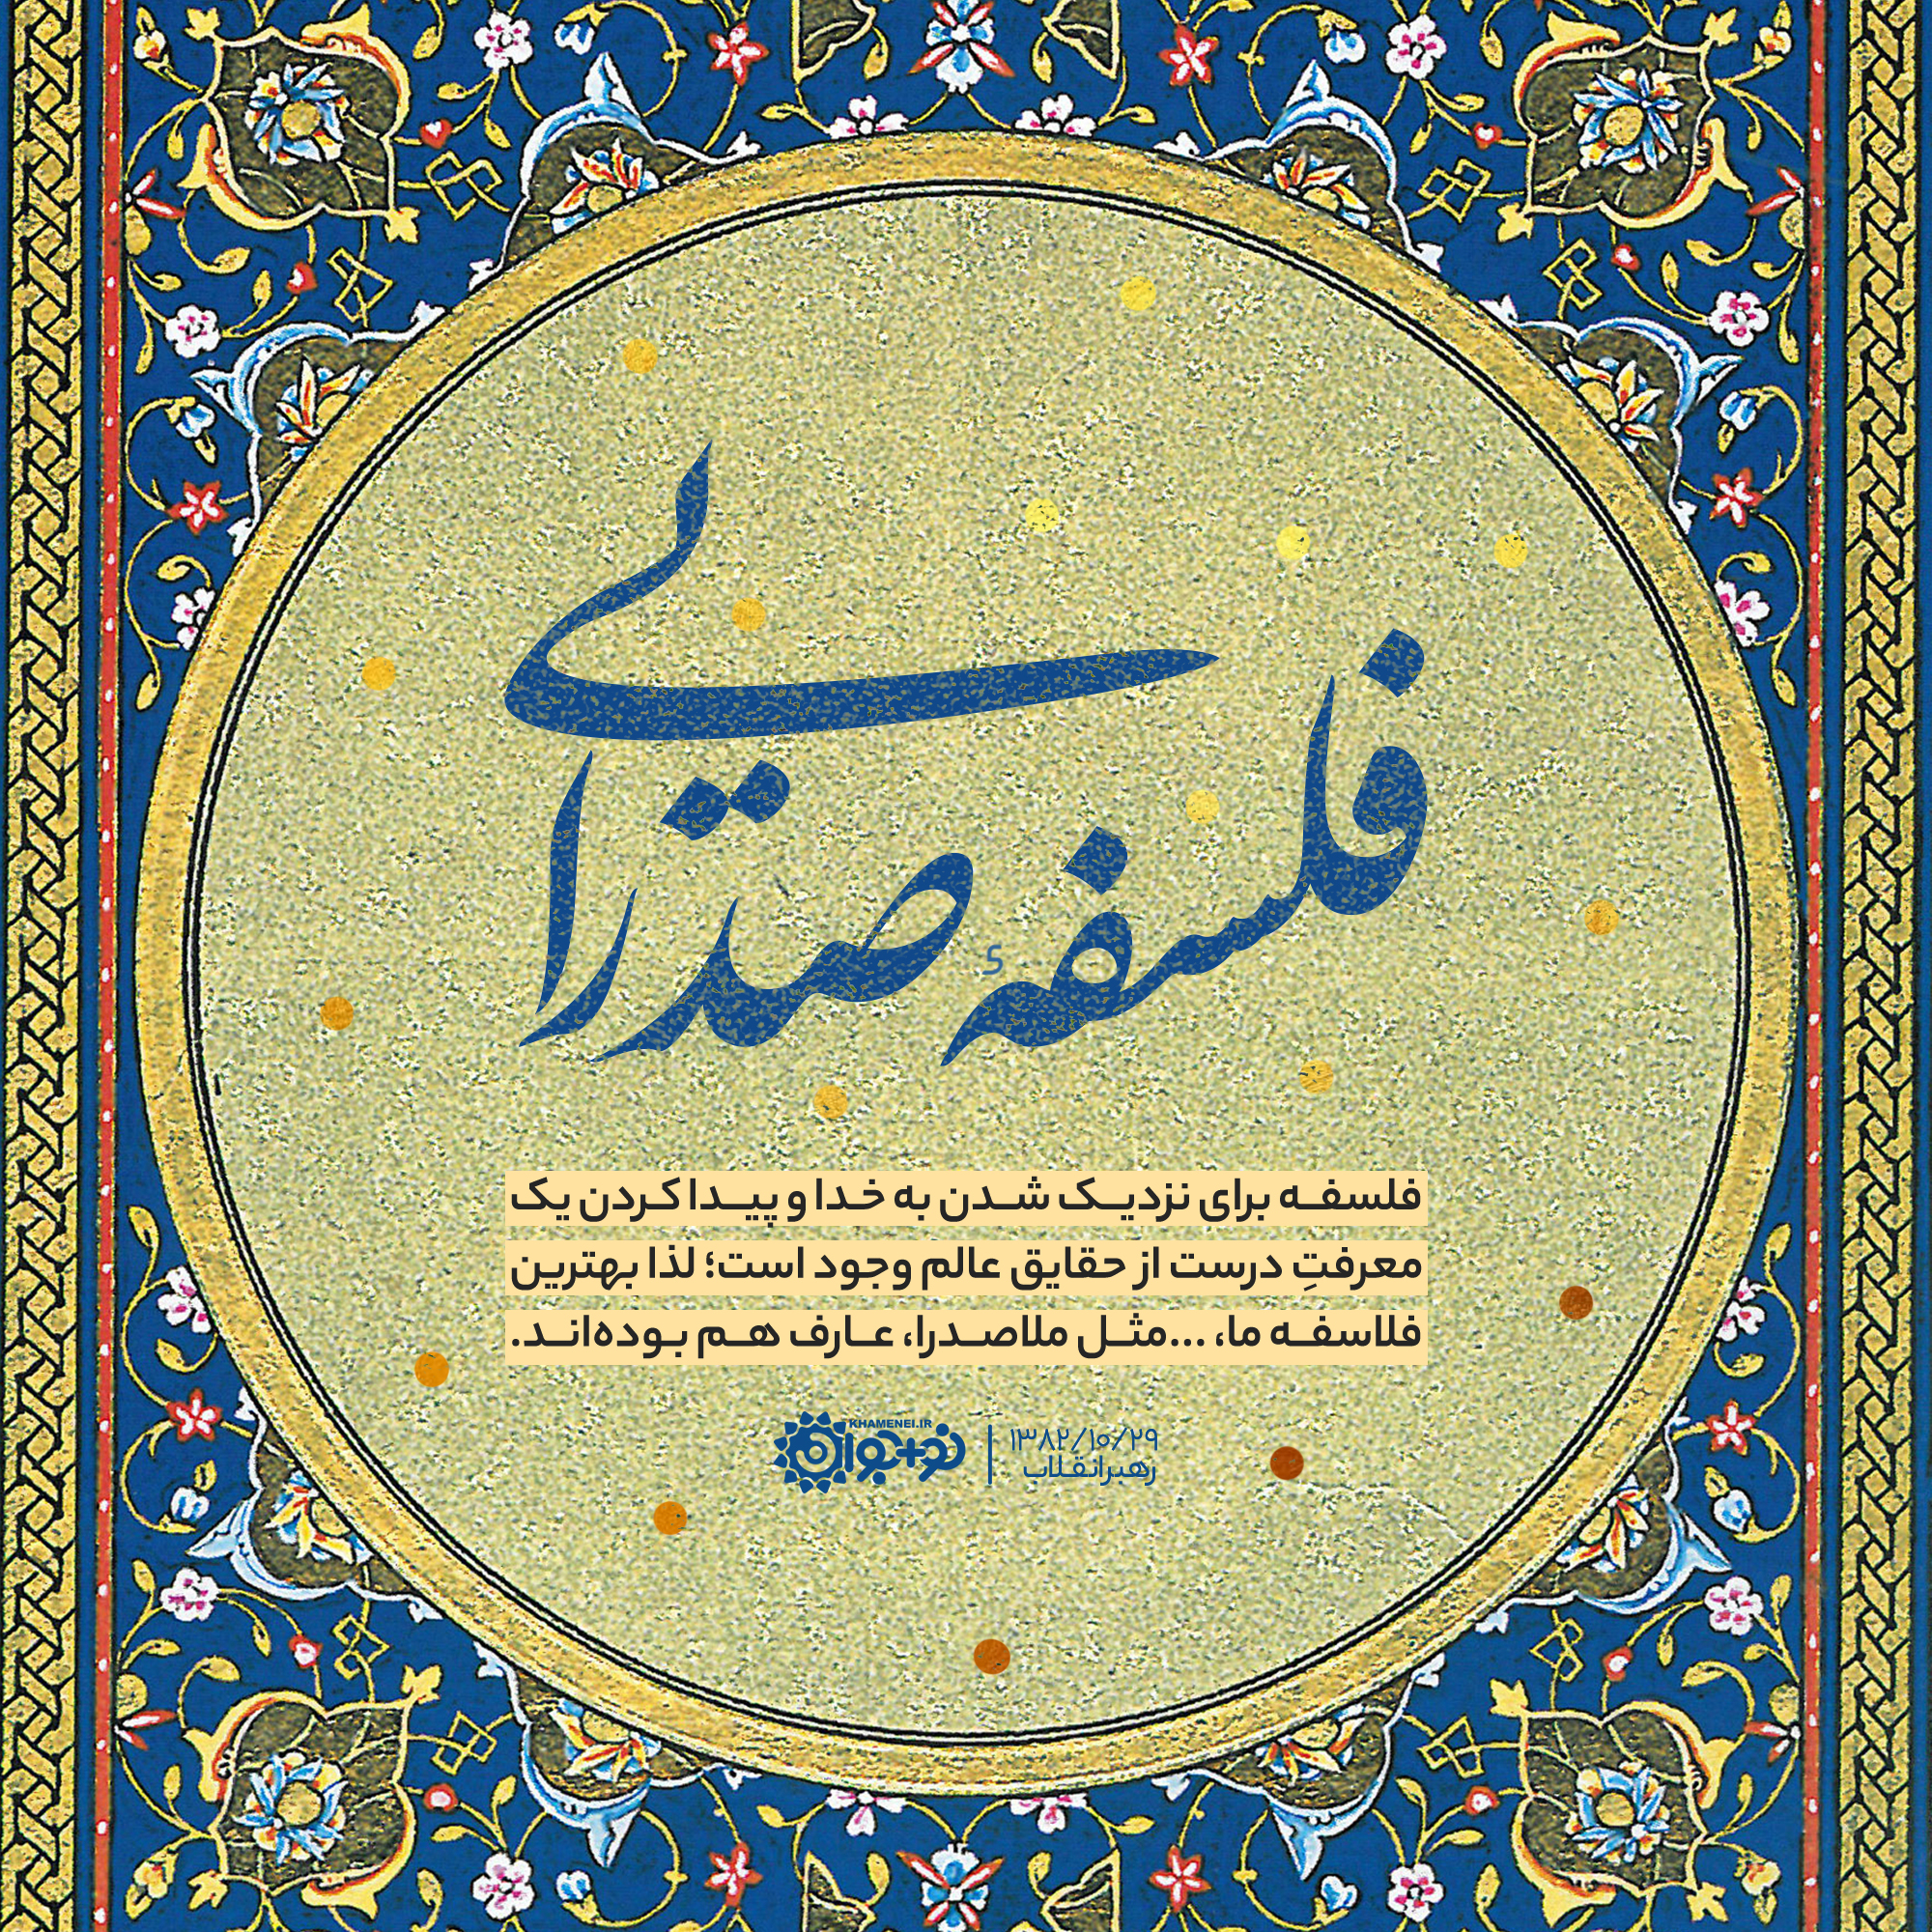 فلسفهٔ صدرایی
فلسفه برای نزدیک شدن به خدا و پیدا کردن یک
معرفتِ درست از حقایق عالم وجود است؛ لذا بهترین
فلاسفه ما، ...مثل ملاصدرا، عارف هم بوده‌اند.
۱۳۸۲/۱۰/۲۹
رهبر انقلاب
KHAMENEI.IR
نو+جوان